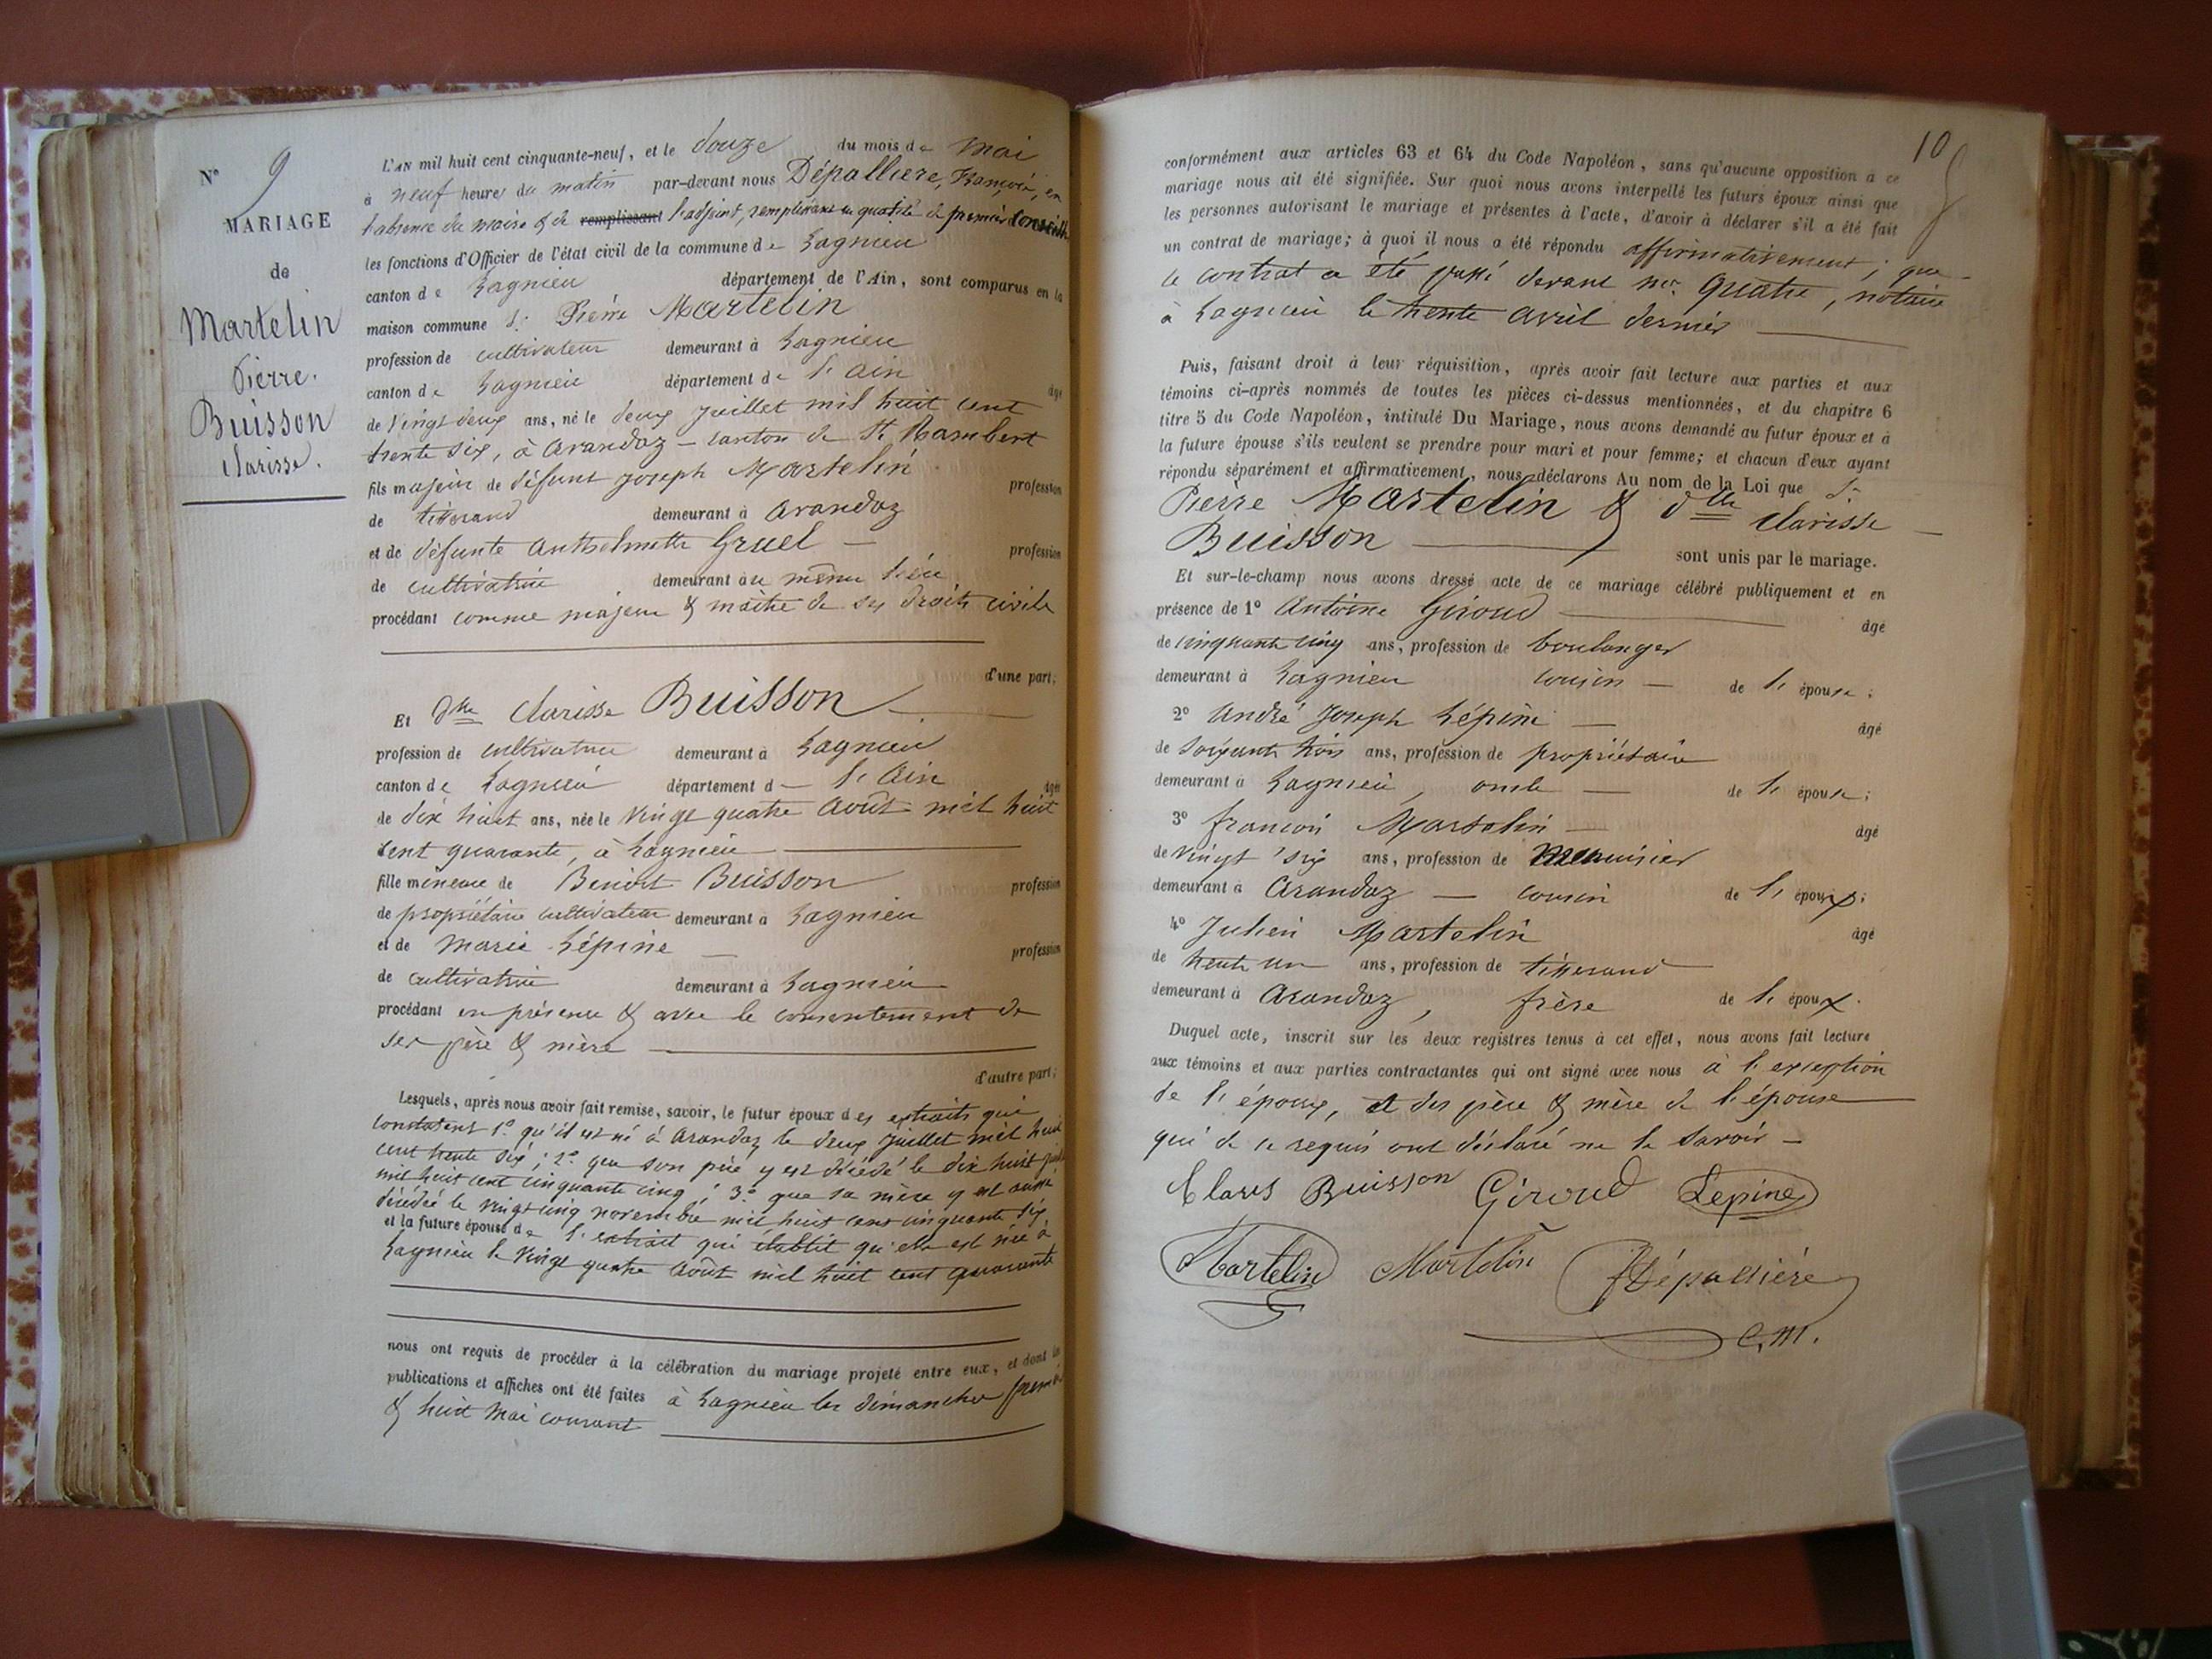 N° 9
MARIAGE
de
Martelin
Pierre.
Buisson
Clarisse.
L'AN mil huit cent cinquante-neuf, et le douze du mois de Mai
à neuf heures du matin par-devant nous Dépalliere, François, en
l'absence du maire & de remplissant l'adjoint, remplissant en qualité de premier Conseiller
les fonctions d'Officier de l'état civil de la commune de Lagnieu
canton de Lagnieu département de l'Ain, sont comparus en la
maison commune Sr Pierre Martelin
profession de cultivateur demeurant à Lagnieu
canton de Lagnieu département de l'ain âgé
de vingt deux ans, né le deux Juillet mil huit cent
trente six, à Arandaz - canton de St Rambert
fils majeur de défunt Joseph Martelin profession
de tisserand demeurant à Arandaz
et de défunte Anthelmette Gruel - profession
de cultivatrice demeurant au même lieu
procédant comme majeur & maître de ses droits civils
d'une part;
Et Dlle Clarisse Buisson
profession de cultivatrice demeurant à Lagnieu
canton de Lagnieu département d- l'Ain âgée
de dix huit ans, née le vingt quatre Août mil huit
cent quarante, à Lagnieu
fille mineure de Benoit Buisson profession
de propriétaire cultivateur demeurant à Lagnieu
et de Marie Lépine - profession
de cultivatrice demeurant à Lagnieu
procédant en présence & avec le consentement de
ses père & mère
d'autre part;
Lesquels, après nous avoir fait remise, savoir, le futur époux des extraits qui
constatent 1° qu'il est né à Arandaz le deux Juillet mil huit
cent trente six; 2° que son père y est décédé le dix huit
mil huit cent cinquante cinq; 3° que sa mère y est aussi
décédée le vingt cinq novembre mil huit cent cinquante six
et la future épouse de l'extrait qui établit qu'elle est née à
Lagnieu le vingt quatre Août mil huit cent quarante
nous ont requis de procéder à la célébration du mariage projeté entre eux, et dont les
publications et affiches ont été faites à Lagnieu les dimanches premier
& huit Mai courant
10
conformément aux articles 63 et 64 du Code Napoléon, sans qu'aucune opposition a ce
mariage nous ait été signifiée. Sur quoi nous avons interpellé les futurs époux ainsi que
les personnes autorisant le mariage et présentes à l'acte, d'avoir à déclarer s'il a été fait
un contrat de mariage; à quoi il nous a été répondu affirmativement; que
le contrat a été passé devant Mr Quatre, notaire
à Lagnieu le trente Avril dernier
Puis, faisant droit à leur réquisition, après avoir fait lecture aux parties et aux
témoins ci-après nommés de toutes les pièces ci-dessus mentionnées, et du chapitre 6
titre 5 du Code Napoléon, intitulé Du Mariage, nous avons demandé au futur époux et à
la future épouse s'ils veulent se prendre pour mari et pour femme; et chacun d'eux ayant
répondu séparément et affirmativement, nous déclarons Au nom de la Loi que Sr
Pierre Martelin & Dlle Clarisse
Buisson sont unis par le mariage.
Et sur-le-champ nous avons dressé acte de ce mariage célébré publiquement et en
présence de 1° Antoine Giroud âgé
de cinquante cinq ans, profession de boulanger
demeurant à Lagnieu cousin - de l'épouse;
2° André Joseph Lépine - âgé
de soixante trois ans, profession de propriétaire
demeurant à Lagnieu, oncle - de l'épouse;
3° François Martelin - âgé
de vingt six ans, profession de Menuisier
demeurant à Arandaz - cousin de l'époux;
4° Julien Martelin âgé
de trente un ans, profession de tisserand
demeurant à Arandaz, frère de l'époux.
Duquel acte, inscrit sur les deux registres tenus à cet effet, nous avons fait lecture
aux témoins et aux parties contractantes qui ont signé avec nous à l'exception
de l'époux, et des père & mère de l'épouse
qui de ce requis ont déclaré ne le savoir -
Clariss Buisson Giroud Lepine
Martelin Martelin FDépallière
C. M.